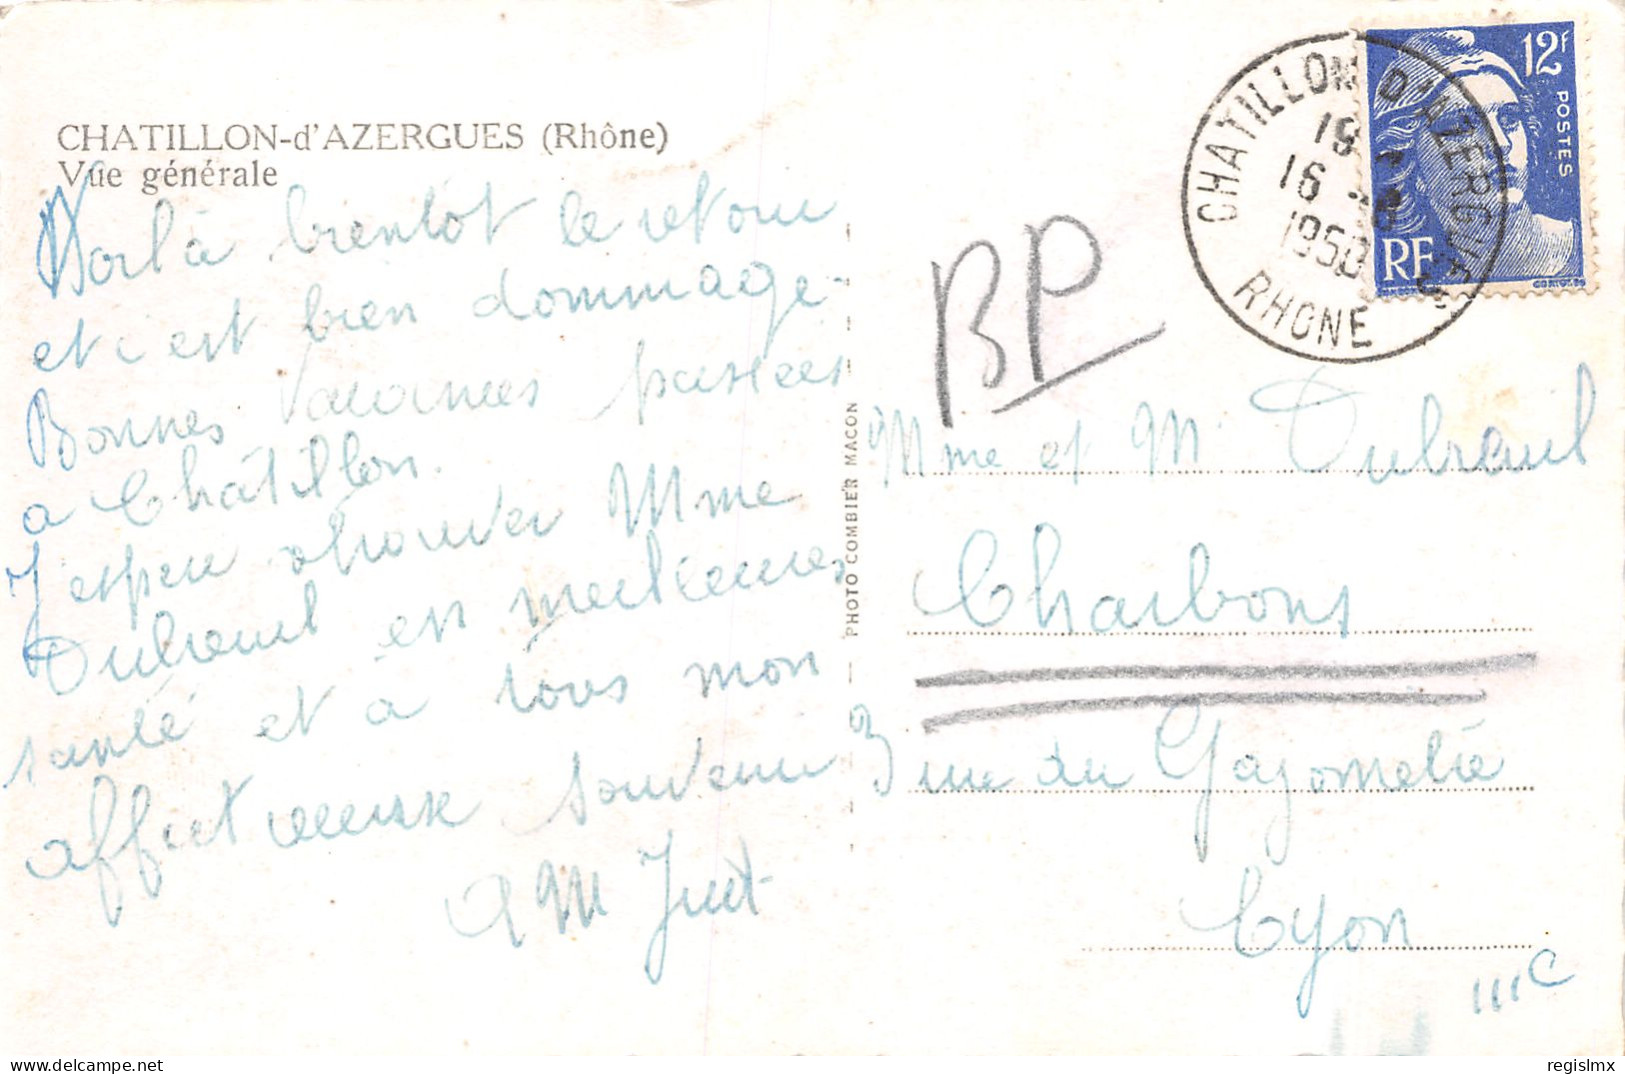 CHATILLON-d'AZERGUES (Rhône)
Vue générale
Voilà bientot le retour
et c'est bien dommage-
Bonnes Vacances passées
a Châtillon.
J'espere retrouver Mme
Dubreuil en meilleures
santé et a tous mon
affectueuse souvenir
AM Just
PHOTO COMBIER MACON
BP
CHATILLON D'AZERGUES
19
16 -8
1950
RHONE
12F
POSTES
RF
Mme et M. Dubreuil
Charbons
3 rue du Gazometre
Lyon
IIIe
delcampe.net
regislmx